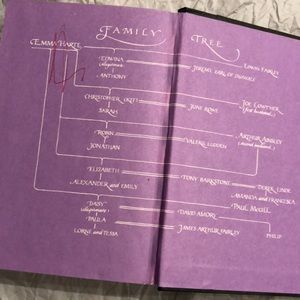 FAMILY TREE
EMMA HARTE
EDWINA EDWIN FAIRLEY
(illegitimate) JEREMY, EARL OF DUNVALE
ANTHONY
CHRISTOPHER (KIT) JUNE LOWE JOE LOWTHER
(first husband)
SARAH
ROBIN VALERIE LUDDEN ARTHUR AINSLEY
(second husband)
JONATHAN
ELIZABETH TONY BARKSTONE DEREK LINDE
ALEXANDER and EMILY AMANDA and FRANCESCA
"DAISY" DAVID AMORY PAUL McGILL
(illegitimate)
PAULA JAMES ARTHUR FAIRLEY PHILIP
LORNE and TESSA